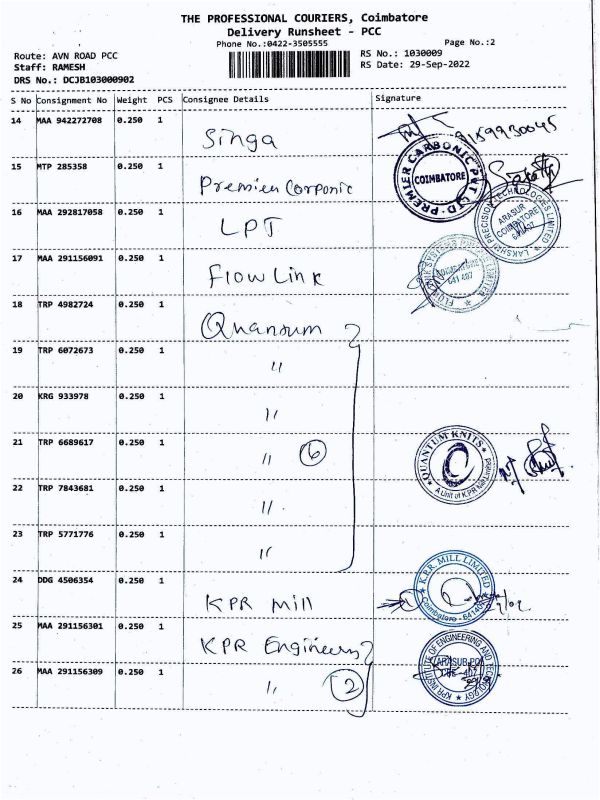 THE PROFESSIONAL COURIERS, Coimbatore
Delivery Runsheet - PCC
Phone No.:0422-3505555
Page No.:2
Route: AVN ROAD PCC
RS No.: 1030009
Staff: RAMESH
RS Date: 29-Sep-2022
DRS No.: DCJB103000902
S No Consignment No Weight PCS Consignee Details Signature
14 MAA 942272708 0.250 1 Singa
15 MTP 285358 0.250 1 Premier Corponic
PREMIER CARBONIC PVT LTD. COIMBATORE
16 MAA 292817058 0.250 1 LPT
LAKSHMI PRECISION TECHNOLOGIES LIMITED ARASUR COIMBATORE
17 MAA 291156091 0.250 1 Flow Link
641 407
18 TRP 4982724 0.250 1 Quansum
19 TRP 6072673 0.250 1 "
20 KRG 933978 0.250 1 "
21 TRP 6689617 0.250 1 " 6
QUANTUM KNITS
A Unit of KPR Mill Limited
22 TRP 7843681 0.250 1 "
23 TRP 5771776 0.250 1 "
24 DDG 4506354 0.250 1 KPR Mill
K.P.R. MILL LIMITED
Coimbatore - 641407
25 MAA 291156301 0.250 1 KPR Engineers
KPR INSTITUTE OF ENGINEERING AND TECHNOLOGY
ARASUR.PO
CBE-407
26 MAA 291156309 0.250 1 " 2